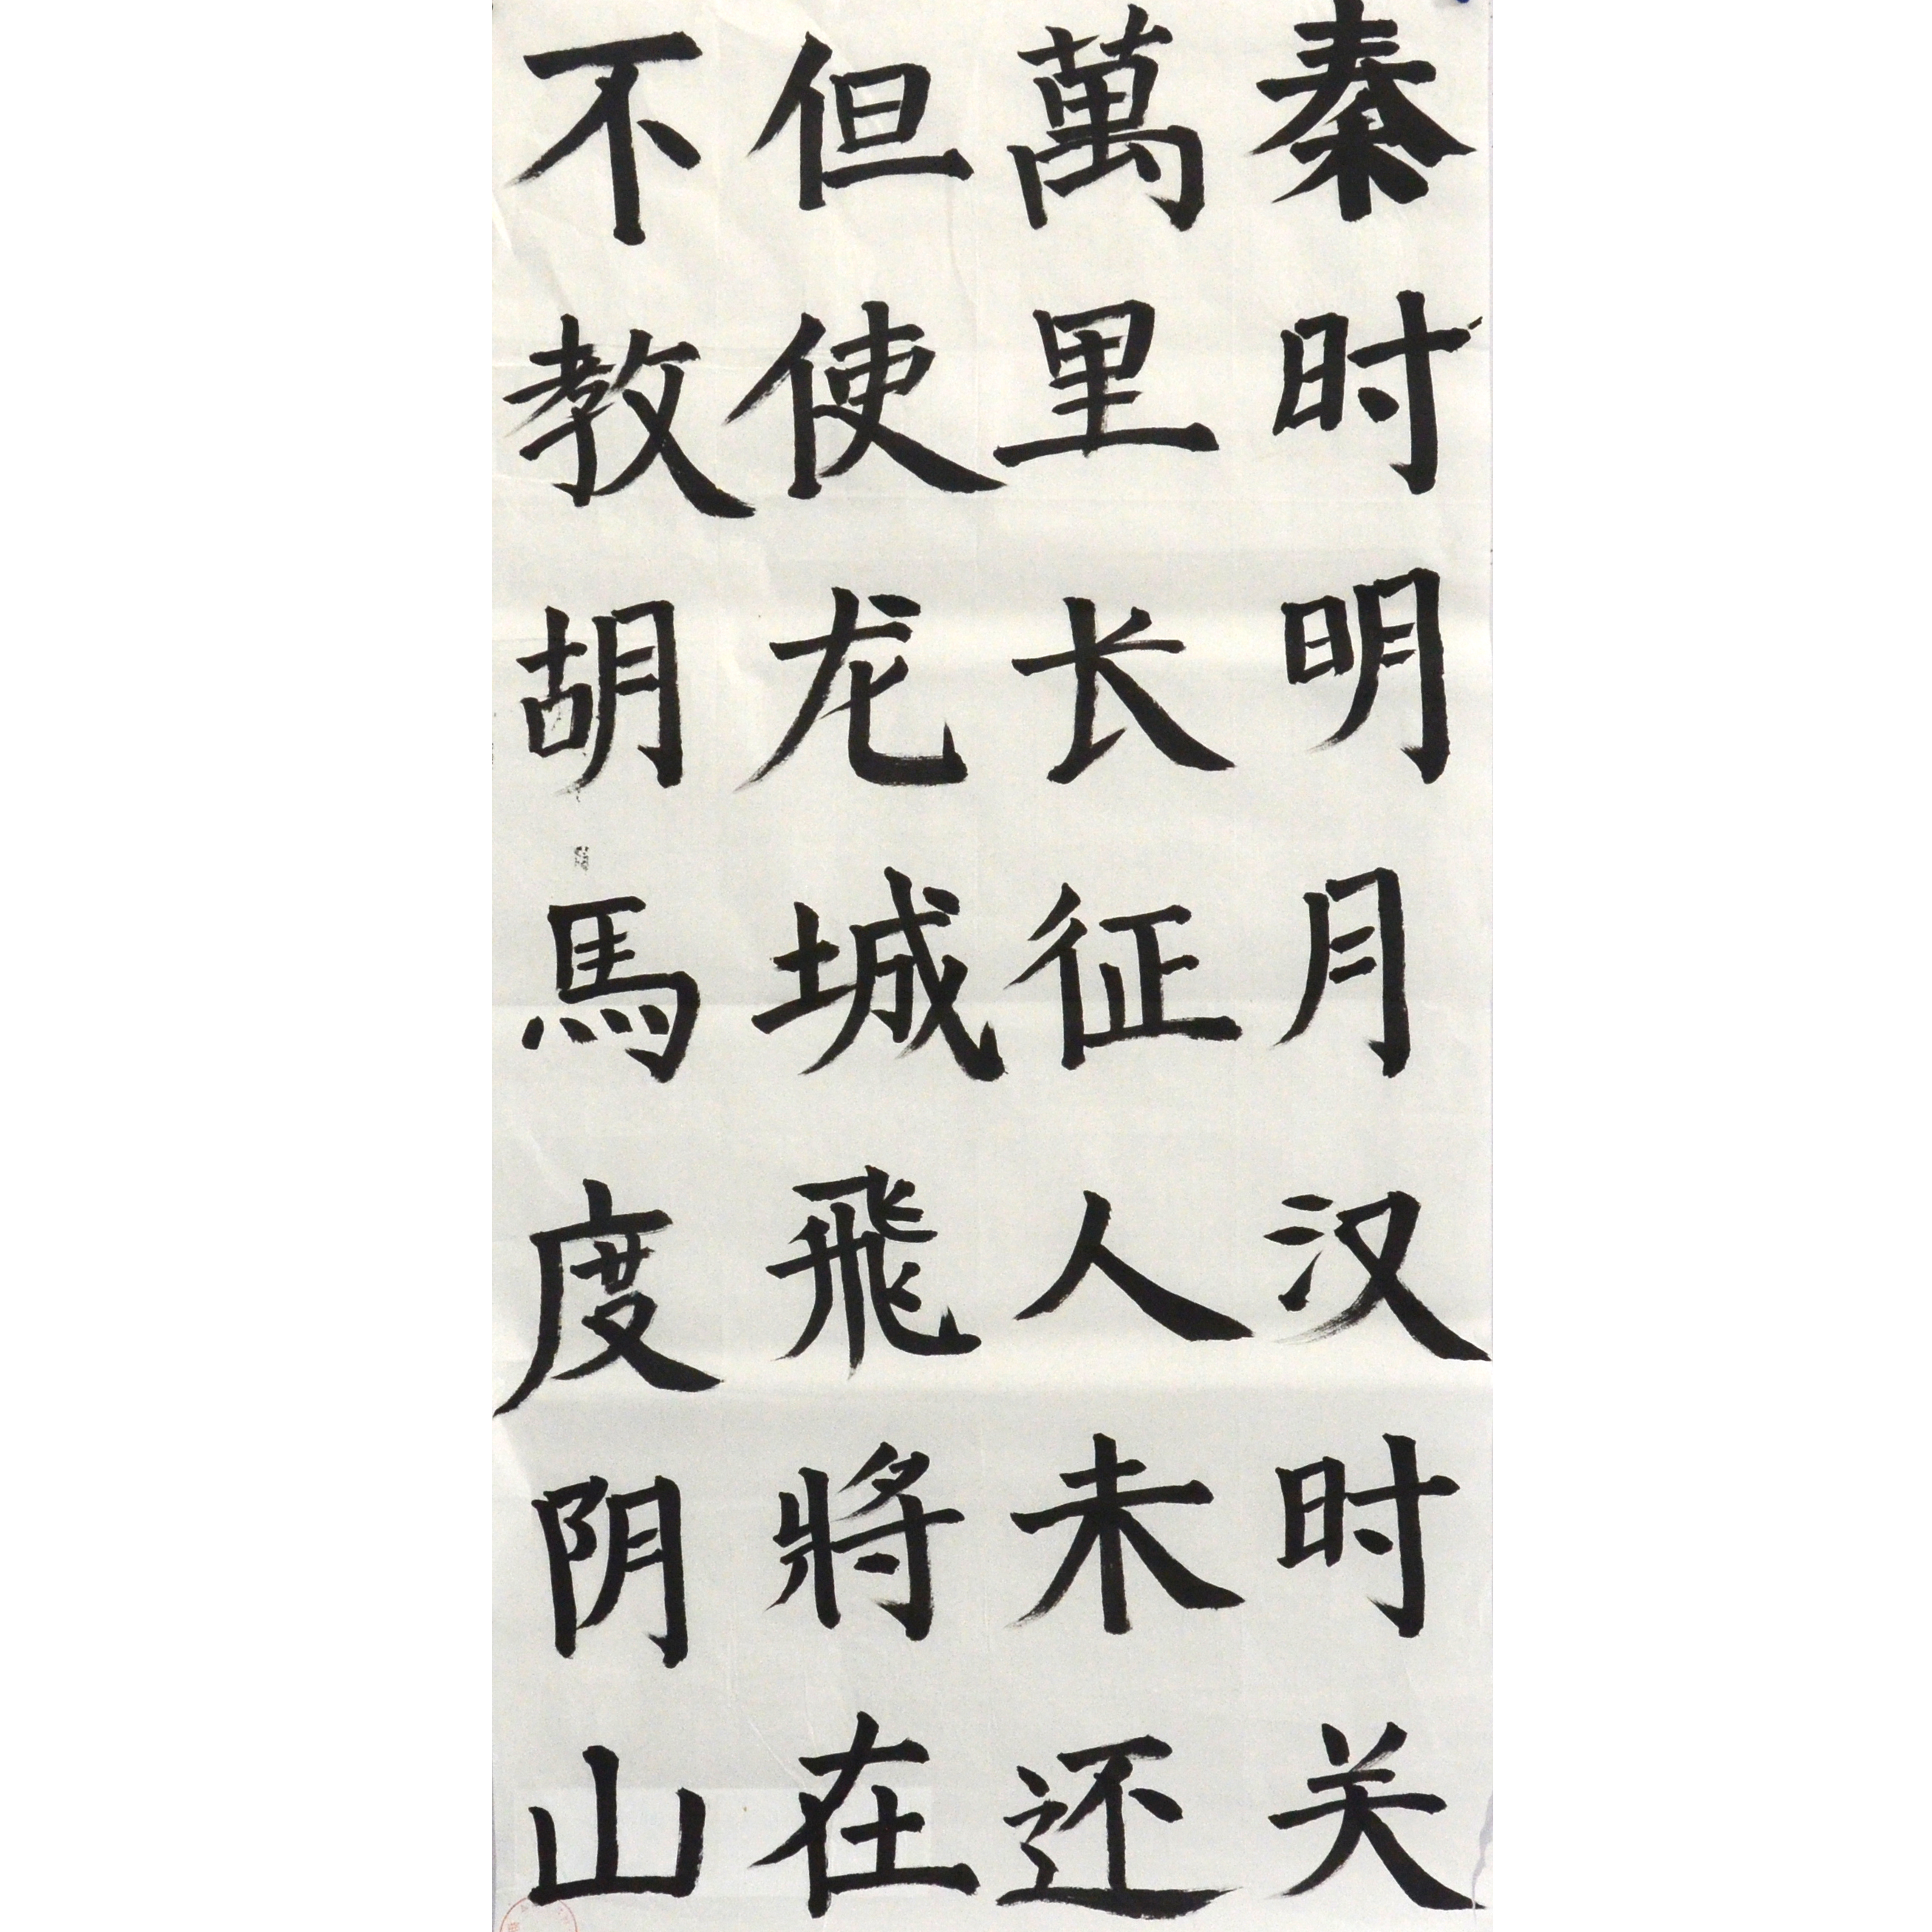 秦时明月汉时关
萬里长征人未还
但使龙城飛將在
不教胡馬度阴山